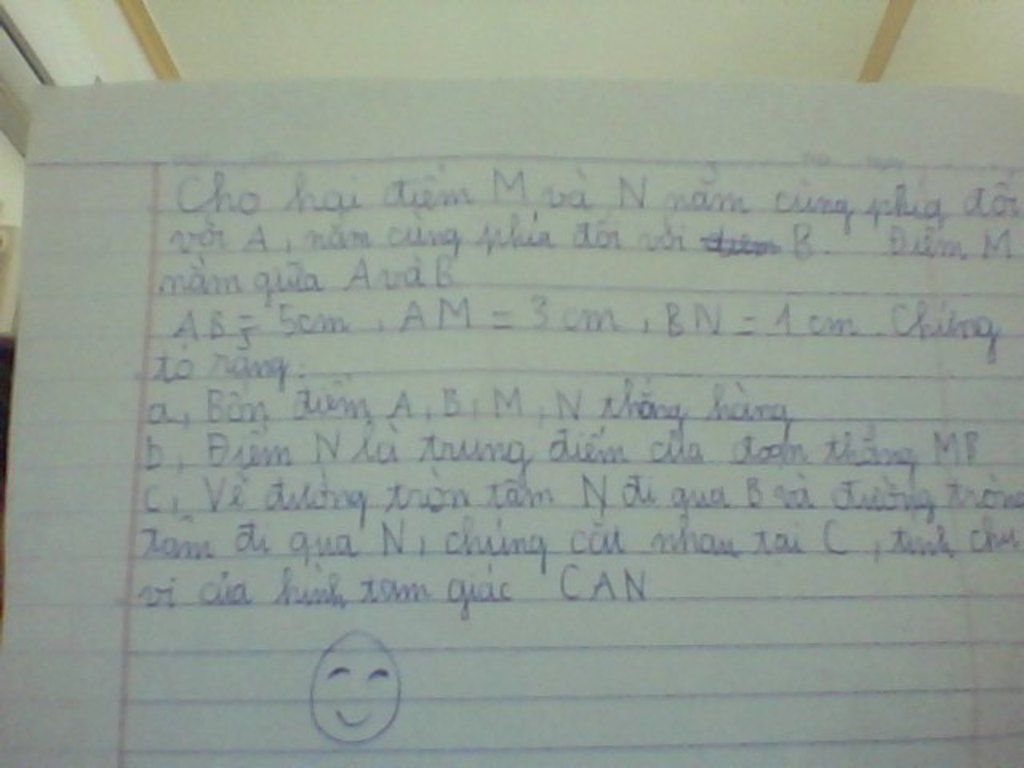 Cho hai điểm M và N nằm cùng phía đối
với A, nằm cùng phía đối với B. Điểm M
nằm giữa A và B
AB = 5cm, AM = 3cm, BN = 1cm. Chứng
tỏ rằng:
a, Bốn điểm A, B, M, N thẳng hàng
b, Điểm N là trung điểm của đoạn thẳng MB
c, Vẽ đường tròn tâm N đi qua B và đường tròn
tâm đi qua N, chúng cắt nhau tại C, tính chu
vi của hình tam giác CAN